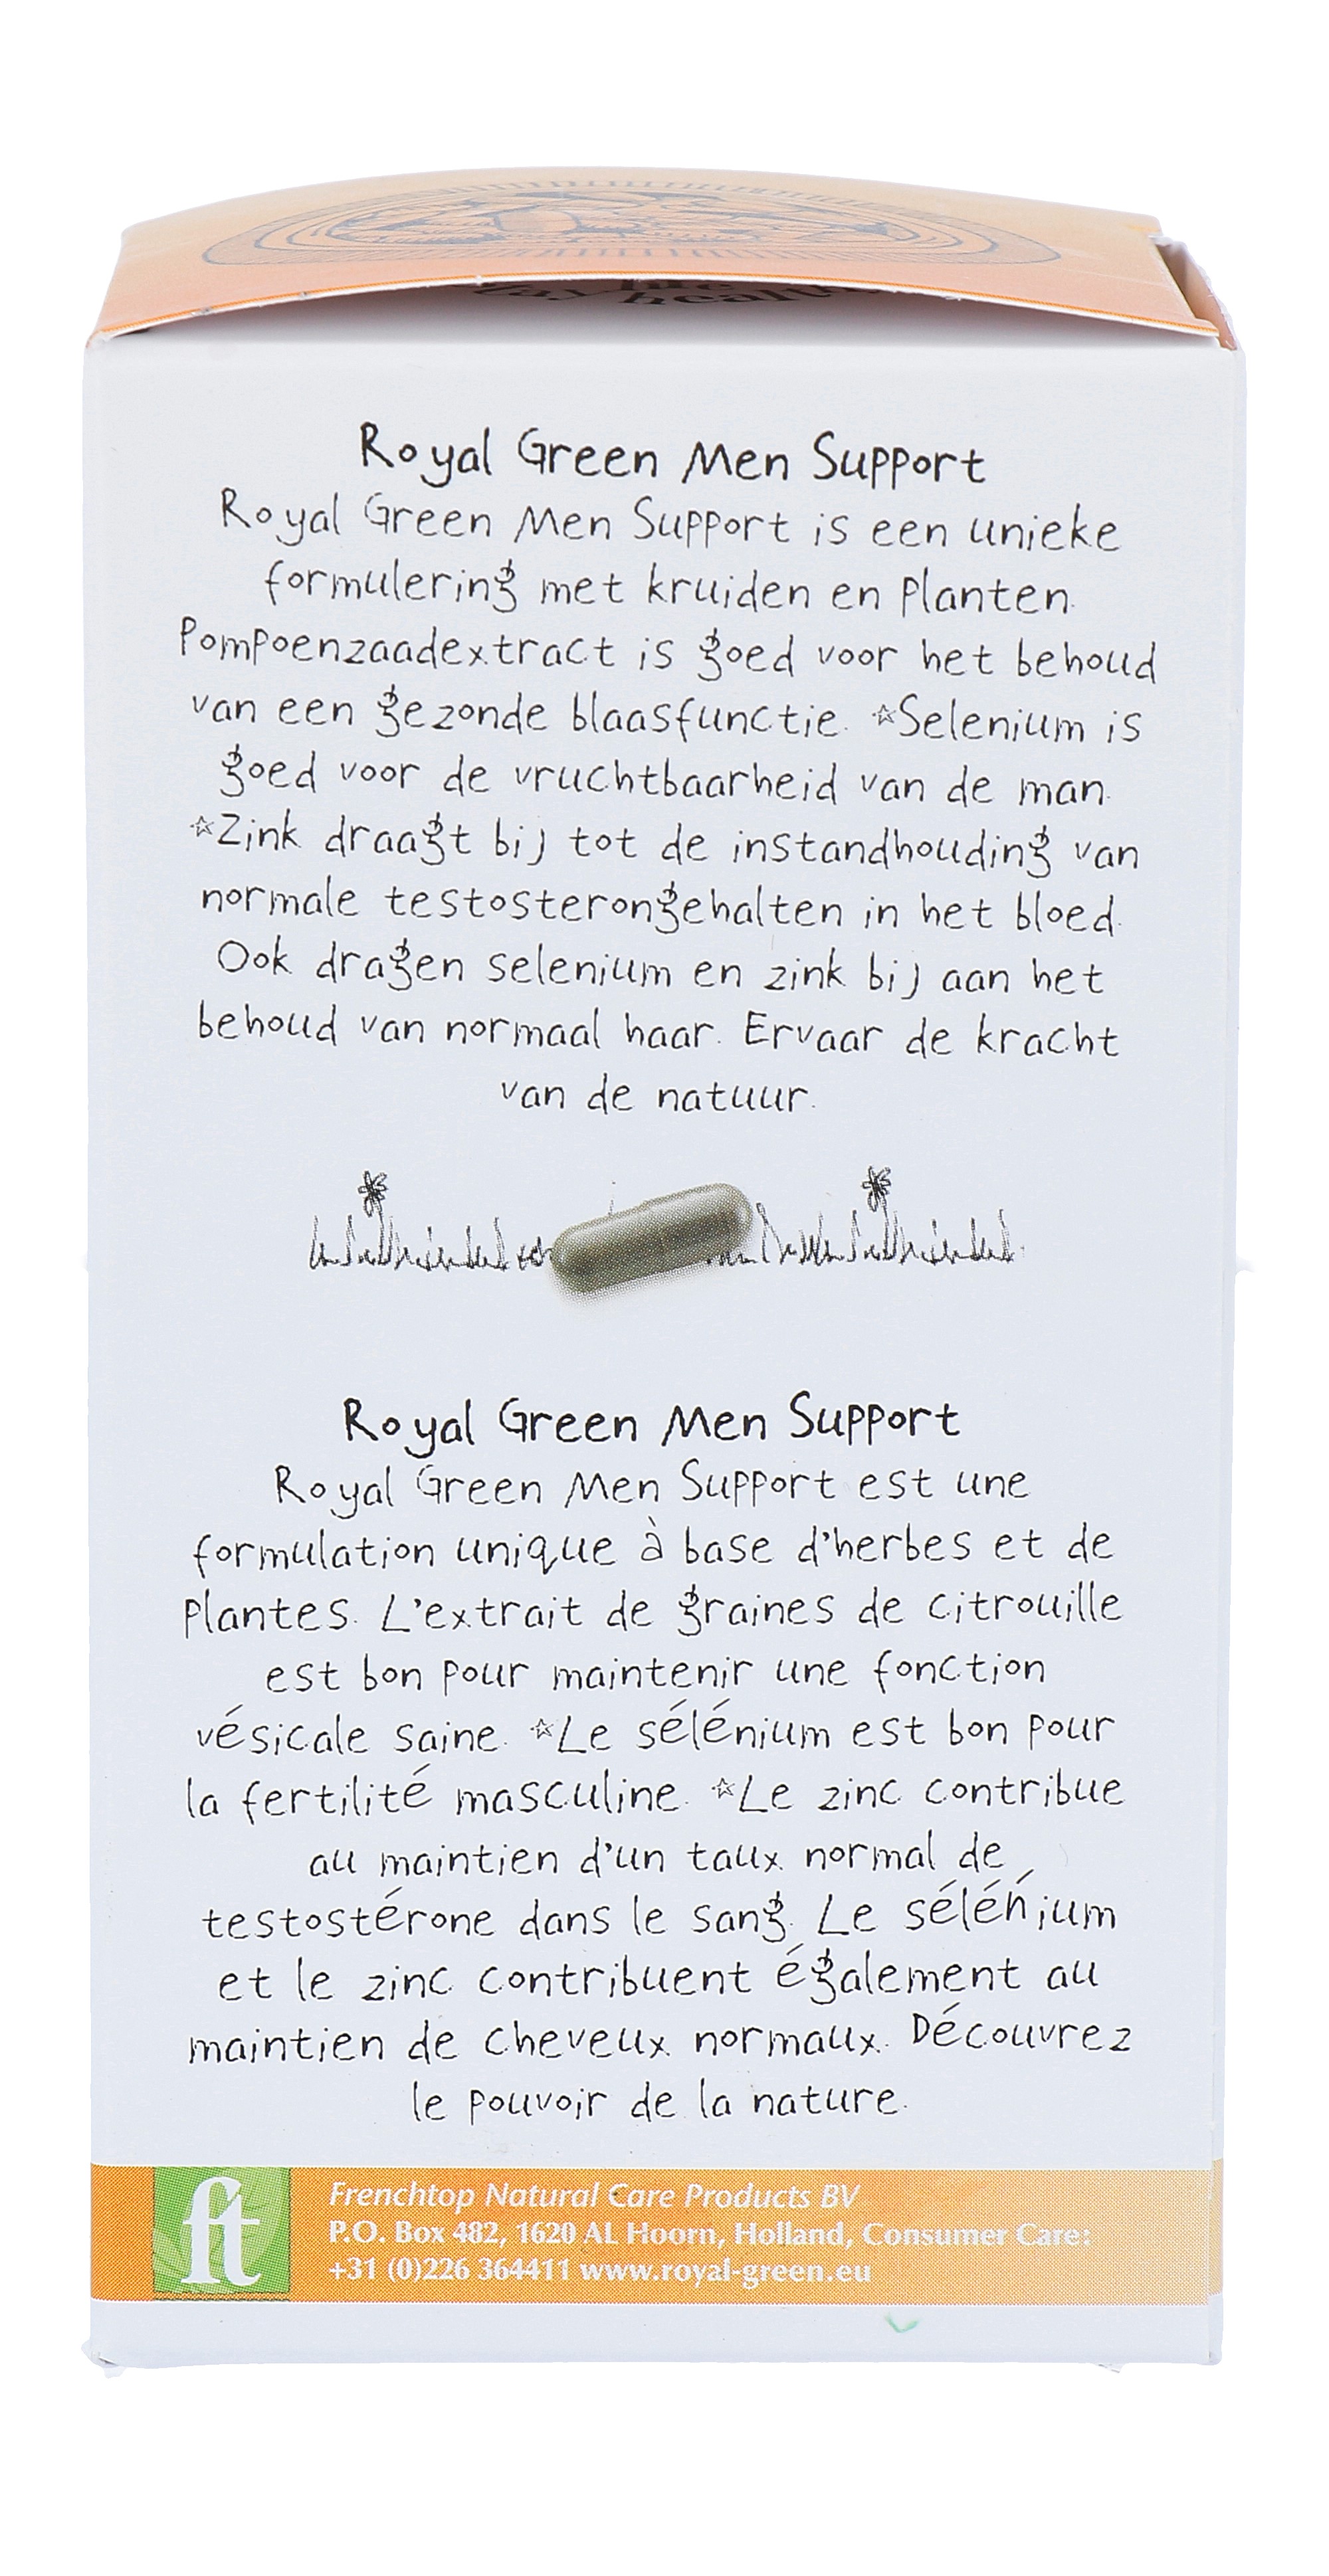 Royal Green Men Support
Royal Green Men Support is een unieke
formulering met kruiden en planten.
Pompoenzaadextract is goed voor het behoud
van een gezonde blaasfunctie. *Selenium is
goed voor de vruchtbaarheid van de man.
*Zink draagt bij tot de instandhouding van
normale testosterongehalten in het bloed.
Ook dragen selenium en zink bij aan het
behoud van normaal haar. Ervaar de kracht
van de natuur.
Royal Green Men Support
Royal Green Men Support est une
formulation unique à base d'herbes et de
plantes. L'extrait de graines de citrouille
est bon pour maintenir une fonction
vésicale saine. *Le sélénium est bon pour
la fertilité masculine. *Le zinc contribue
au maintien d'un taux normal de
testostérone dans le sang. Le sélénium
et le zinc contribuent également au
maintien de cheveux normaux. Découvrez
le pouvoir de la nature.
ft
Frenchtop Natural Care Products BV
P.O. Box 482, 1620 AL Hoorn, Holland, Consumer Care:
+31 (0)226 364411 www.royal-green.eu